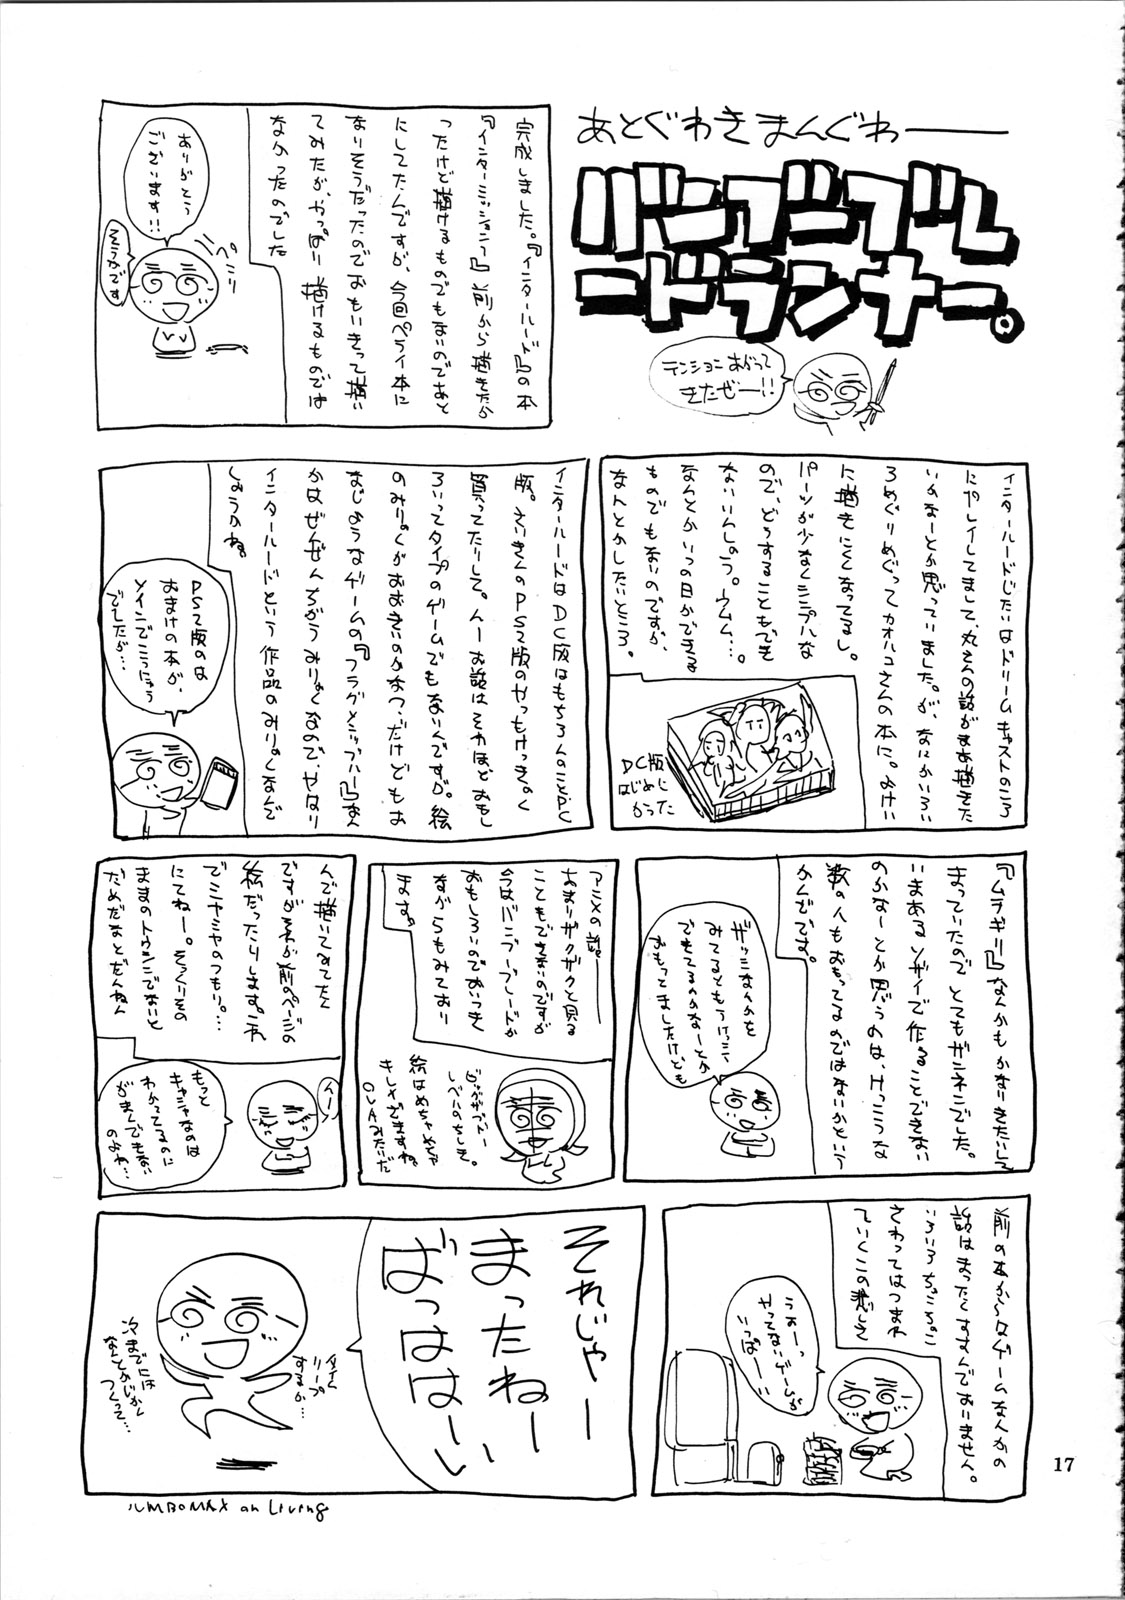 あとぐわきまんぐわー
バンブーブレ
ードランナー。
テンションあがって
きたぜー!!
完成しました。『インタールード』の本
『インターミッション』前から描きたか
ったけど描けるものでもないのであと
にしてたんですが、今回ペライ本に
なりそうだったのでおもいきって描い
てみたが、やっぱり描けるものでは
なかったのでした
ペこり
ありがとう
ございます!!
そうかです
インタールードじたいはドリームキャストのころ
にプレイしてまして、丸さんの話がまあ描きた
いかなーとか思っていました。が、なにかいろい
ろめぐりめぐってカオルコさんの本に。
に描きにくくなってるし。
パーツが少なくシンプルな
ので、どうすることもでき
ないいんしょう。ウムム…。
なんとかいつの日かできる
ものでもないのですが、
なんとかしたいところ。
DC版
はじめに
かうた
インタールードはDC版はもちろんのことPC
版。さいきんのPS2版のやつもけっきょく
買ってたりして。んーお話はそれほどおもし
ろいってタイプのゲームでもないんですが。絵
のみりょくがおおきいのかなつ。だけどもお
なじようなゲームの『フラグとシップハー』なん
かはぜんぜんちがうみりょくなので、やはり
インタールードという作品のみりょくなんで
しょうかね。
PS2版のは
おまけの本が、
メインでこうにゅう
でしたが…
『ムラギリ』なんかもかなりきたいして
まっていたのでとてもザンネンでした。
いまあるソザイで作ることできない
のかなーとか思うのは、けっこうな
数の人もおもってるのではないかという
かんじです。
みてるともうけっこう
できてるんかなーとか
おもってましたけども
アニメの話ー
あまりザクザクと見る
こともできないのですが
今はバンブーブレードが
おもしろいのでおいつき
ながらもみており
ます。
レベルのちしき。
絵はめちゃめちゃ
きれいですね。
OVAみたいだ
んで描いてみてたん
ですがそれが前のページの
絵だったりします。これ
でミヤミヤのつもり。…
にてねー。そっくりその
ままのトウシンでないと
だめだなとだんねん
んー
もっと
キャシャなのは
わかってるのに
がまんできない
のよね…
前の本からはゲームなんかの
話はまったくすすんでおりません。
いろいろちょこちょこ
さわってはつまれ
ていくこの悲しさ
うおーっ
やってないゲームが
いっぱーい
それじゃー
まったねー
ばっはは〜い
タイム
リープ
するか…
次までには
なんとかじかん
つくって…
ルMBOMAX an Living
17